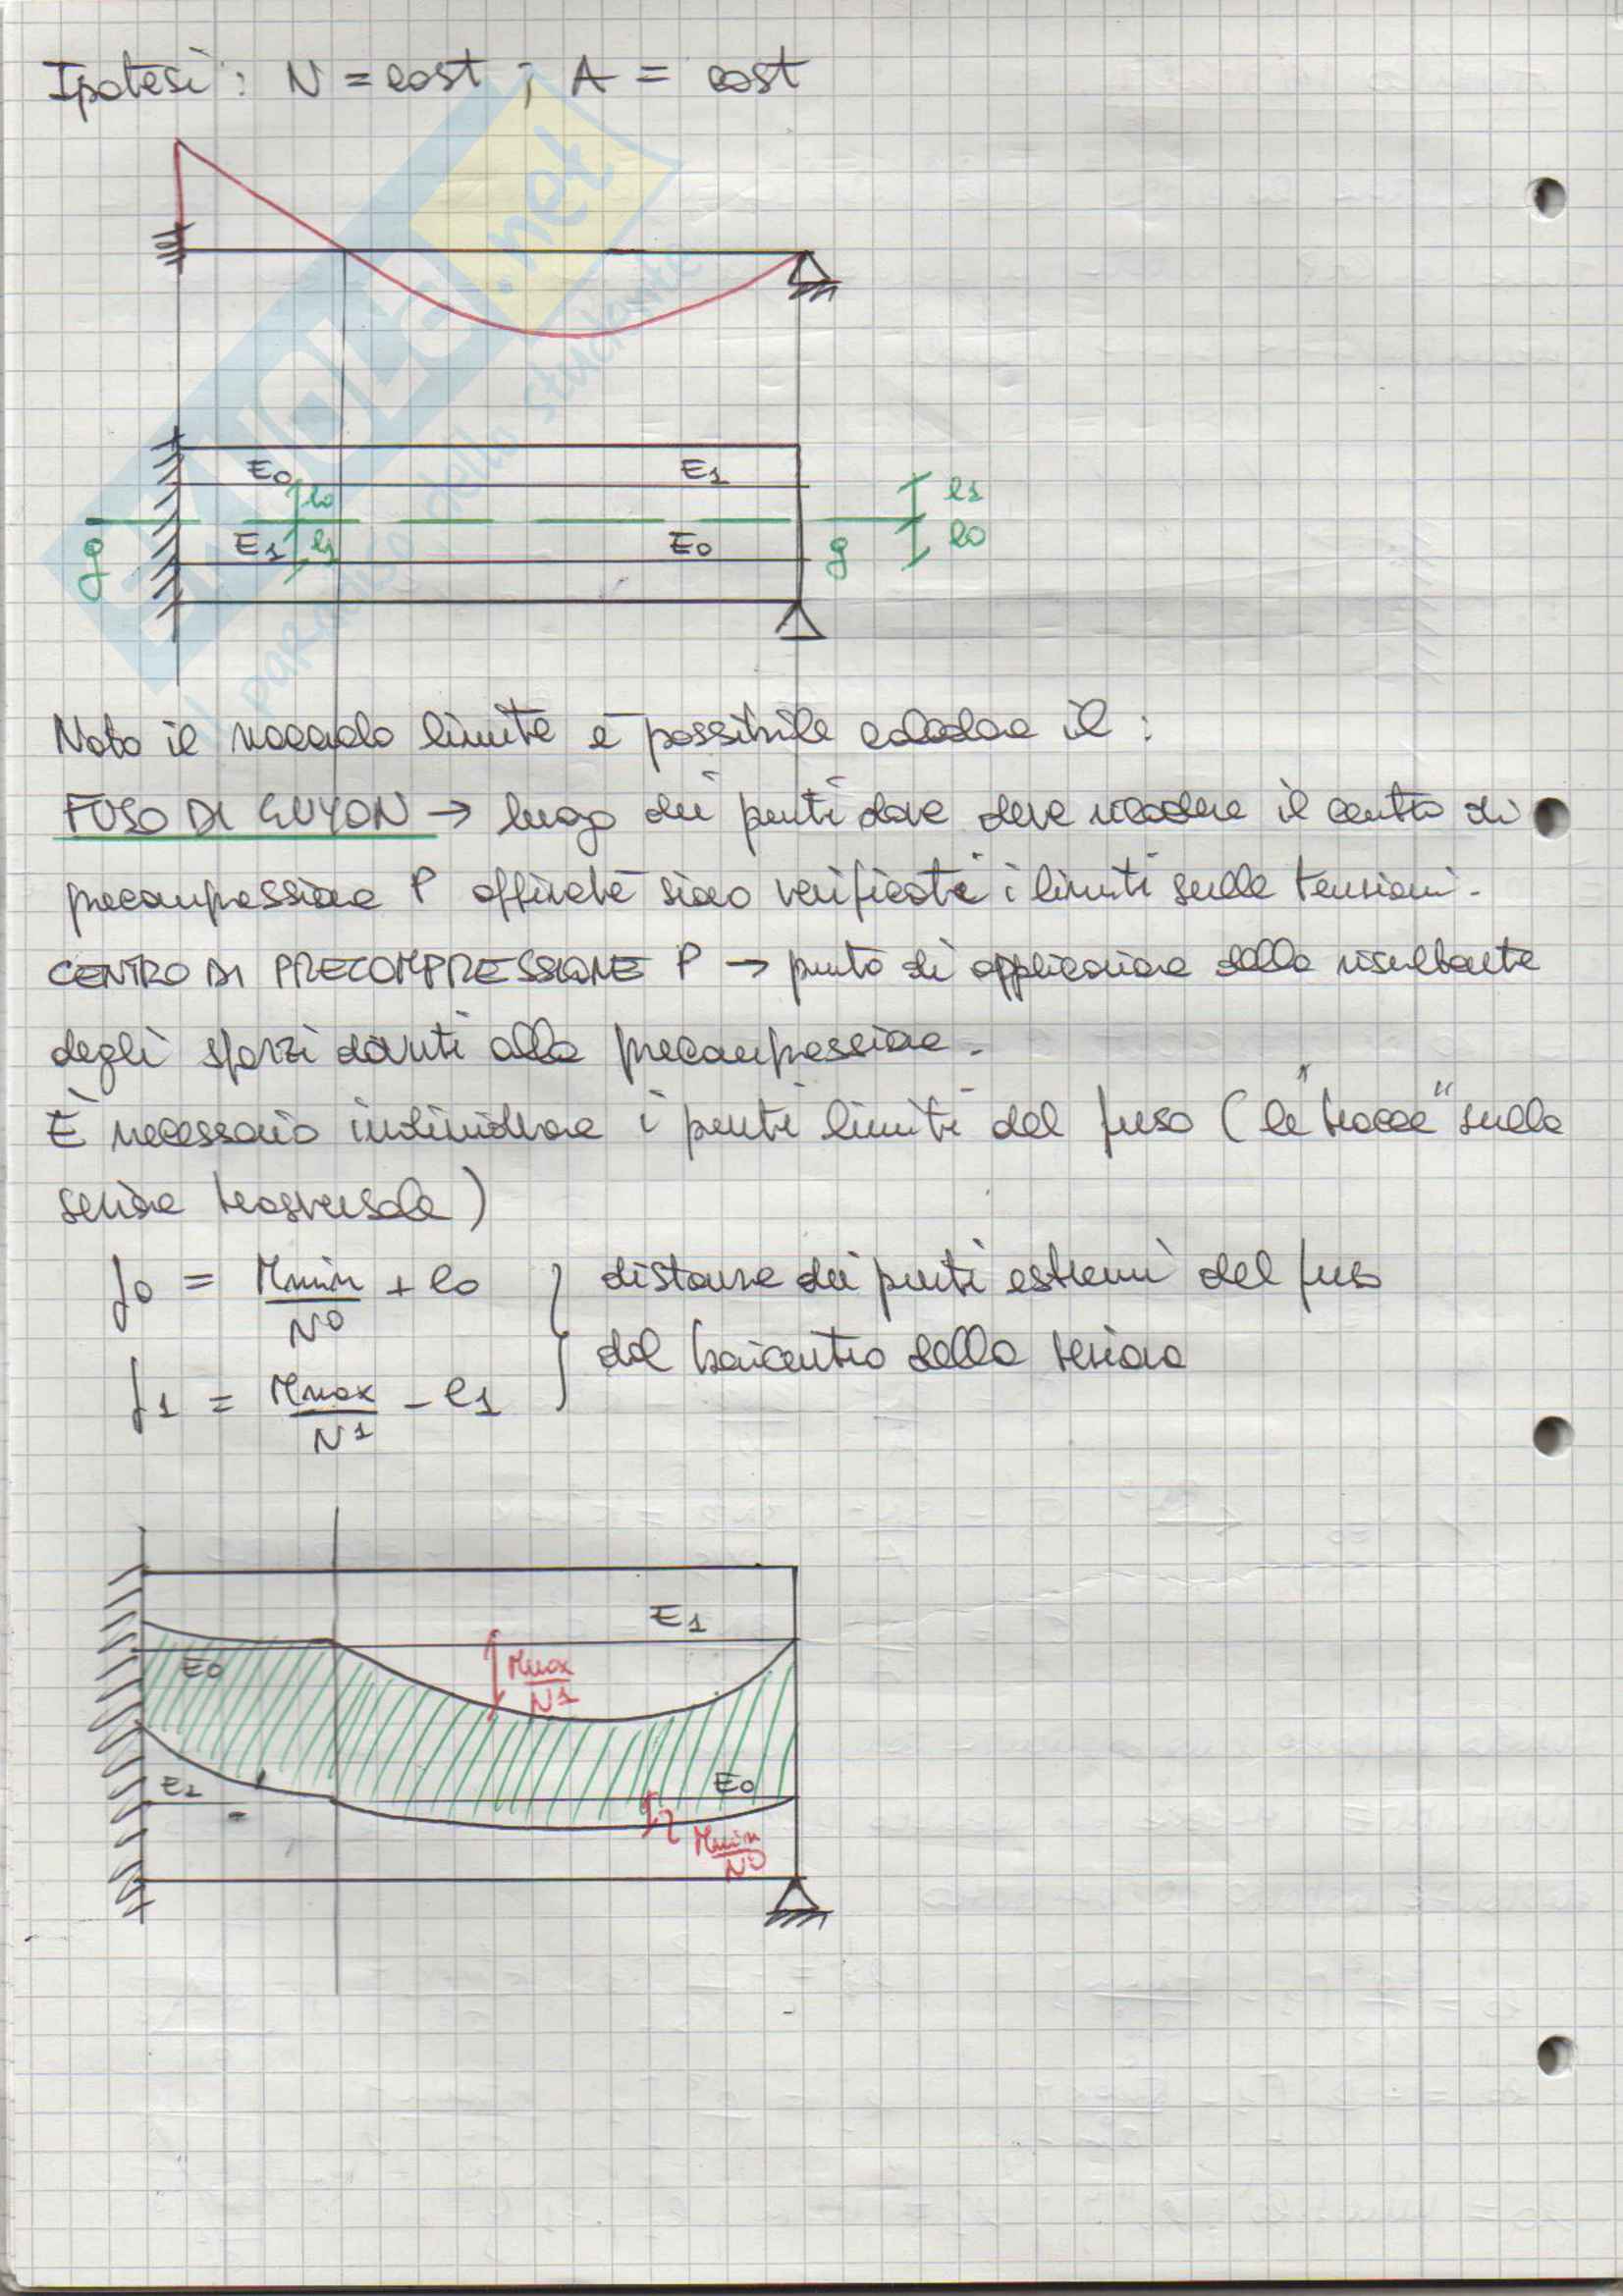 Ipotesi: N = cost ; A = cost
E0 E1
l0 e1
E1 e1 E0 e0
g g
Noto il nocciolo limite è possibile calcolare il :
FUSO DI GUYON → luogo dei punti dove deve ricadere il centro di
precompressione P affinché siano verificati i limiti sulle tensioni.
CENTRO DI PRECOMPRESSIONE P → punto di applicazione della risultante
degli sforzi dovuti alla precompressione.
È necessario individuare i punti limiti del fuso (le "tracce" sulla
sezione trasversale)
f0 = Mmin/N0 + e0 } distanze dei punti estremi del fuso
f1 = Mmax/N1 - e1 dal baricentro della sezione
E1
E0 Mmax/N1
E1 E0
Mmin/N0
.net
il paradiso dello studente